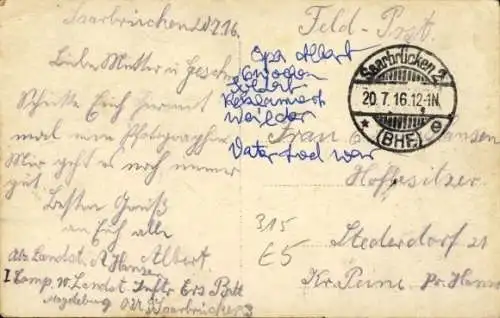 Saarbrücken 20.7.16.
Liebe Mutter u. Geschw.
Schicke Euch hiermit
mal eine Photographie
Mir geht es noch immer
gut
Besten Gruß
an Euch alle
Albert
Abs. Landst. A Hansen
I Komp. Landst. Inftr Ers Batl
Magdeburg Saarbrücken 3
Feld-Post.
Opa Albert
Soldat
Reklamiert
weil der
Vater tod war
Saarbrücken 2
20.7.16.12-1N.
* (BHF.) e
Frau Hansen
Hofbesitzer.
315
E5
Stederdorf 21
Kr. Peine Pr. Hann